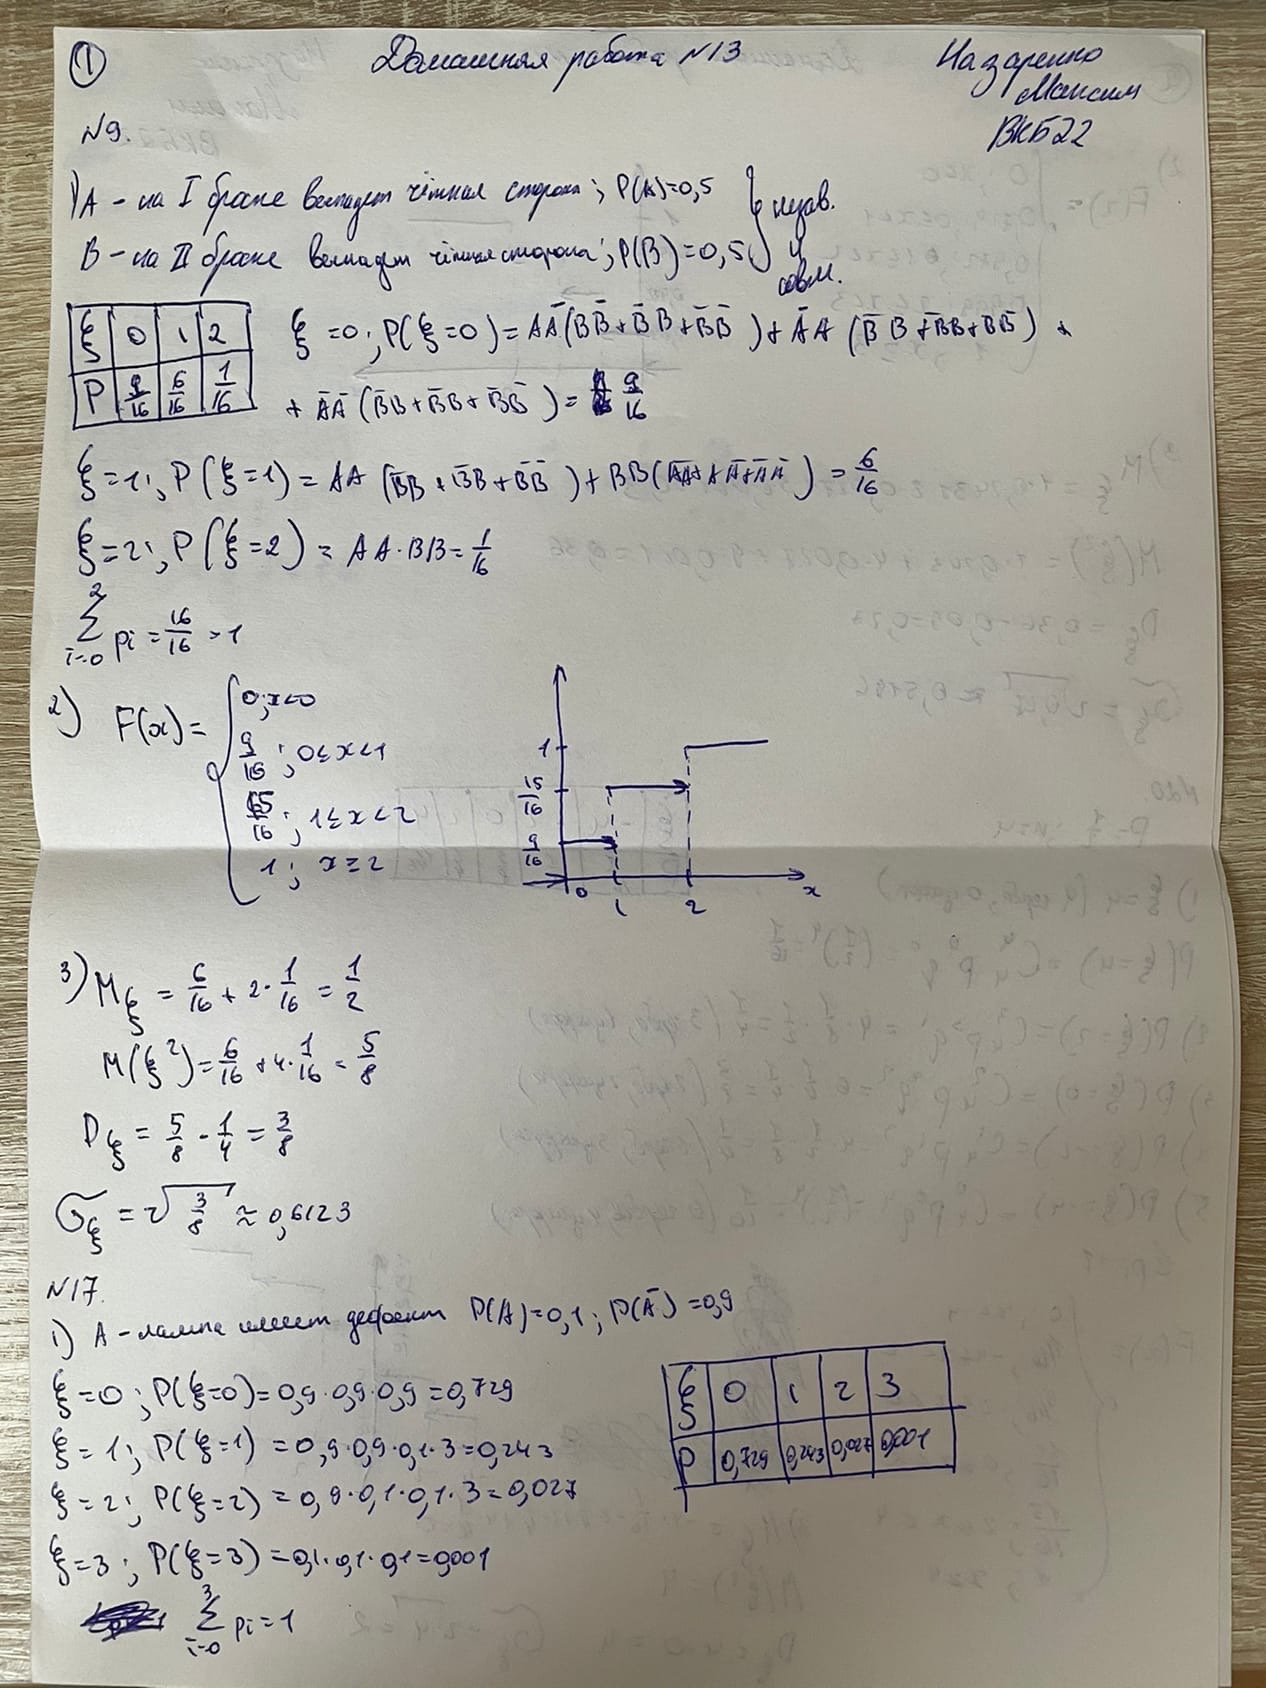 ① Домашняя работа №13 Назаренко
Максим
ВКБ22
№9.
1) A - на I броске выпадет чётная сторона; P(A)=0,5 } незав.
B - на II броске выпадет чётная сторона; P(B)=0,5 и совм.
ξ 0 1 2
P 9/16 6/16 1/16
ξ=0; P(ξ=0) = AĀ(BB̄+B̄B+B̄B̄) + ĀA (B̄B+B̄B̄+BB̄) +
+ ĀĀ (B̄B+B̄B̄+BB̄) = 9/16
ξ=1; P(ξ=1) = AA (B̄B + BB̄ + B̄B̄) + BB(ĀA+AĀ+ĀĀ) = 6/16
ξ=2; P(ξ=2) = AA·BB = 1/16
2
∑ pi = 16/16 = 1
i=0
2) F(x) = { 0; x<0
9/16; 0≤x<1
15/16; 1≤x<2
1; x≥2
1
15/16
9/16
0 1 2 x
3) Mξ = 6/16 + 2·1/16 = 1/2
M(ξ²) = 6/16 + 4·1/16 = 5/8
Dξ = 5/8 - 1/4 = 3/8
σξ = √3/8 ≈ 0,6123
№17.
1) A - лампа имеет дефект P(A)=0,1; P(Ā)=0,9
ξ=0; P(ξ=0) = 0,9·0,9·0,9 = 0,729
ξ=1; P(ξ=1) = 0,9·0,9·0,1·3 = 0,243
ξ=2; P(ξ=2) = 0,9·0,1·0,1·3 = 0,027
ξ=3; P(ξ=3) = 0,1·0,1·0,1 = 0,001
ξ 0 1 2 3
P 0,729 0,243 0,027 0,001
3
∑ pi = 1
i=0